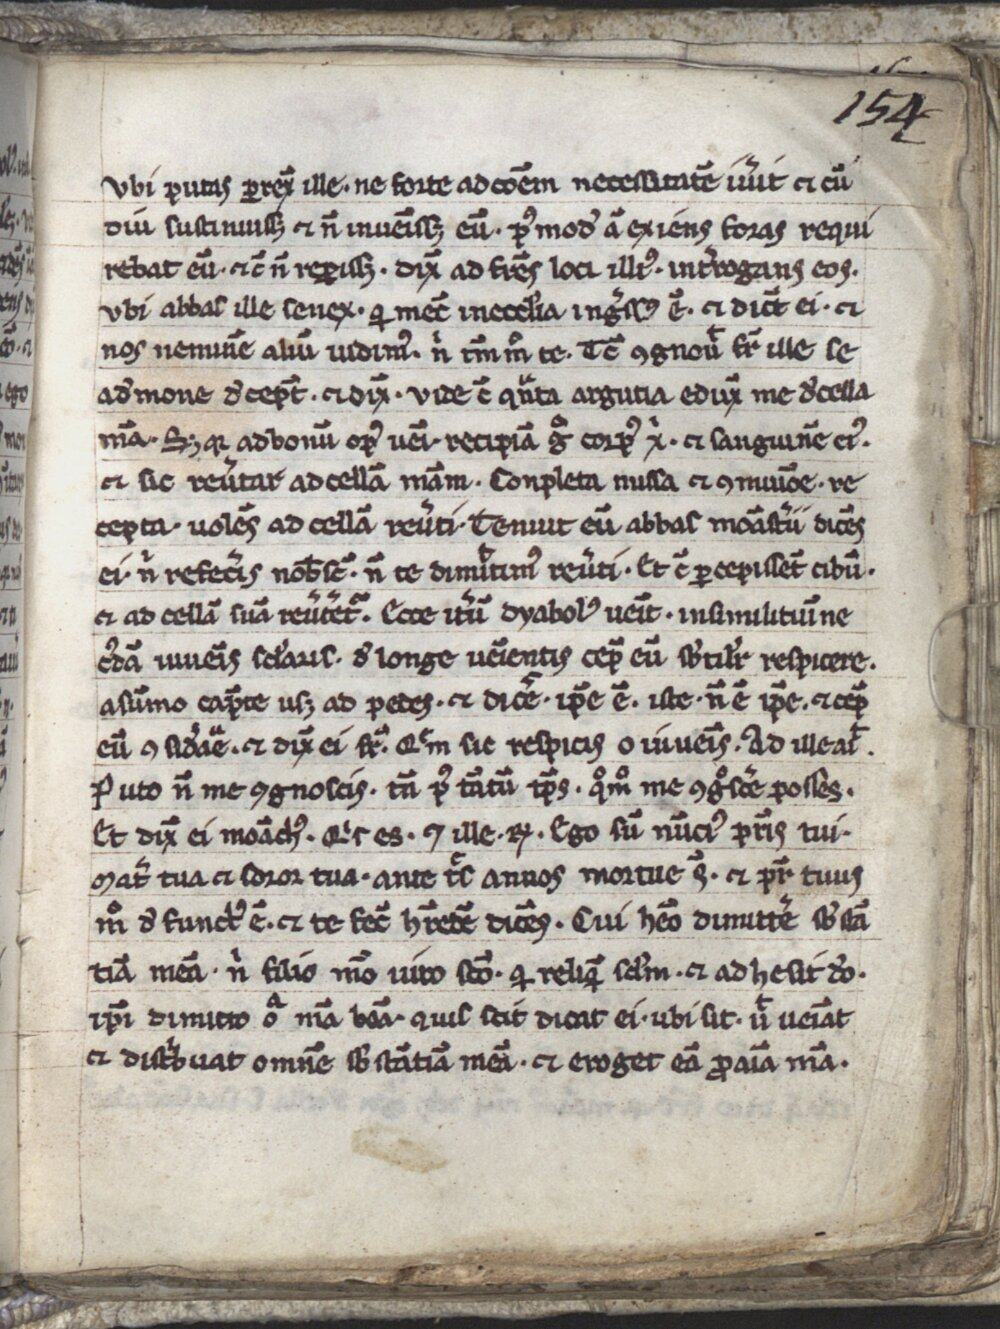 154
vbi putas prexͥ ille · ne forte ad cōem necessitatē iuit ⁊ cū
diu sustinuisꝫ ⁊ n̄ inueisꝫ eū · pꝰ mod̓ a exiens foras requi
rebat eū · ⁊ c̄ n̄ repisꝫ · dix̄ ad fr̄es loci illiꝰ · int̓rogans eos ·
vbi abbas ille senex · q mec̄ in ecc̄lia ing̓ssꝰ ē · ⁊ dict̄ ei · ⁊
nos neminē aliū uidimꝰ · n̓ tm̄ te · Tc̄ ꝯgnou̓ fr̄ ille se
a d̓mone d̓cept̄ · ⁊ dix̄ · vide c̄ qᵃnta argutia eduxͥ me d̓ cella
mā · Sꝫ qꝛ ad bonū opꝰ uēi · recipiā gͦ corpꝰ xͥ · ⁊ sanguinē eiꝰ ·
⁊ sic reu̓tar ad cellā mām · Conpleta missa ⁊ ꝯmuīoe · re
cepta · uolēs ad cellā reu̓ti · Tenuit eū abbas moāst̓ii dicēs
ei · n̓ refec̓is nob̄sc̄ · n̄ te dimit̓timꝰ reu̓ti · Et c̄ pcepissēt cibū ·
⁊ ad cellā suā reu̓t̓etᵃ · Ecce it̓ū dyabolꝰ ueīt · in similituīne
c̓dā iuuēis sc̄laris · d̓ longe uēientis cep̄ eū sb̄tilit̓ respicere ·
a sūmo capite usꝫ ad pedes · ⁊ dicē̓ · ip̄e ē · iste · n̄ ē ip̄e · ⁊ cep̄
eū ꝯsid̓ae · ⁊ dix̄ ei fr̄ · Qͥm sic respicis o iuuēis · Ad ille al̄ ·
Puto n̄ me ꝯgnoscis · tn̄ pꝰ tātū tp̄s · qͦmͦ me ꝯgͦsc̓e posses ·
Et dix̄ ei moāchꝰ · Qͥs es · ⁊ ille · R̄ · Ego sū nūciꝰ pr̄is tui ·
Mat̓ tua ⁊ soror tua · ante t̓s annos mortue s̄ · ⁊ pr̄ tuus
mͦ d̓functꝰ ē · ⁊ te fec̄ hr̄edē dicēs · Cui hēo dimitt̓e sb̄stā
tiā meā · n̓ filio mͦo uiro sc̄o · q reliqͥ sc̄lm · ⁊ adhesit d̓o ·
ip̄i dimitto oᵃ mā boā · quis scit dicat ei · ubi sit · u̓t ueīat
⁊ dist̓buat omnē sb̄stātiā meā · ⁊ eroget eā ꝓ aīa mā ·